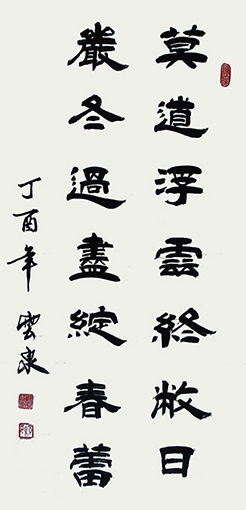 莫道浮雲終敝日
嚴冬過盡綻春蕾
丁酉年 雲泉